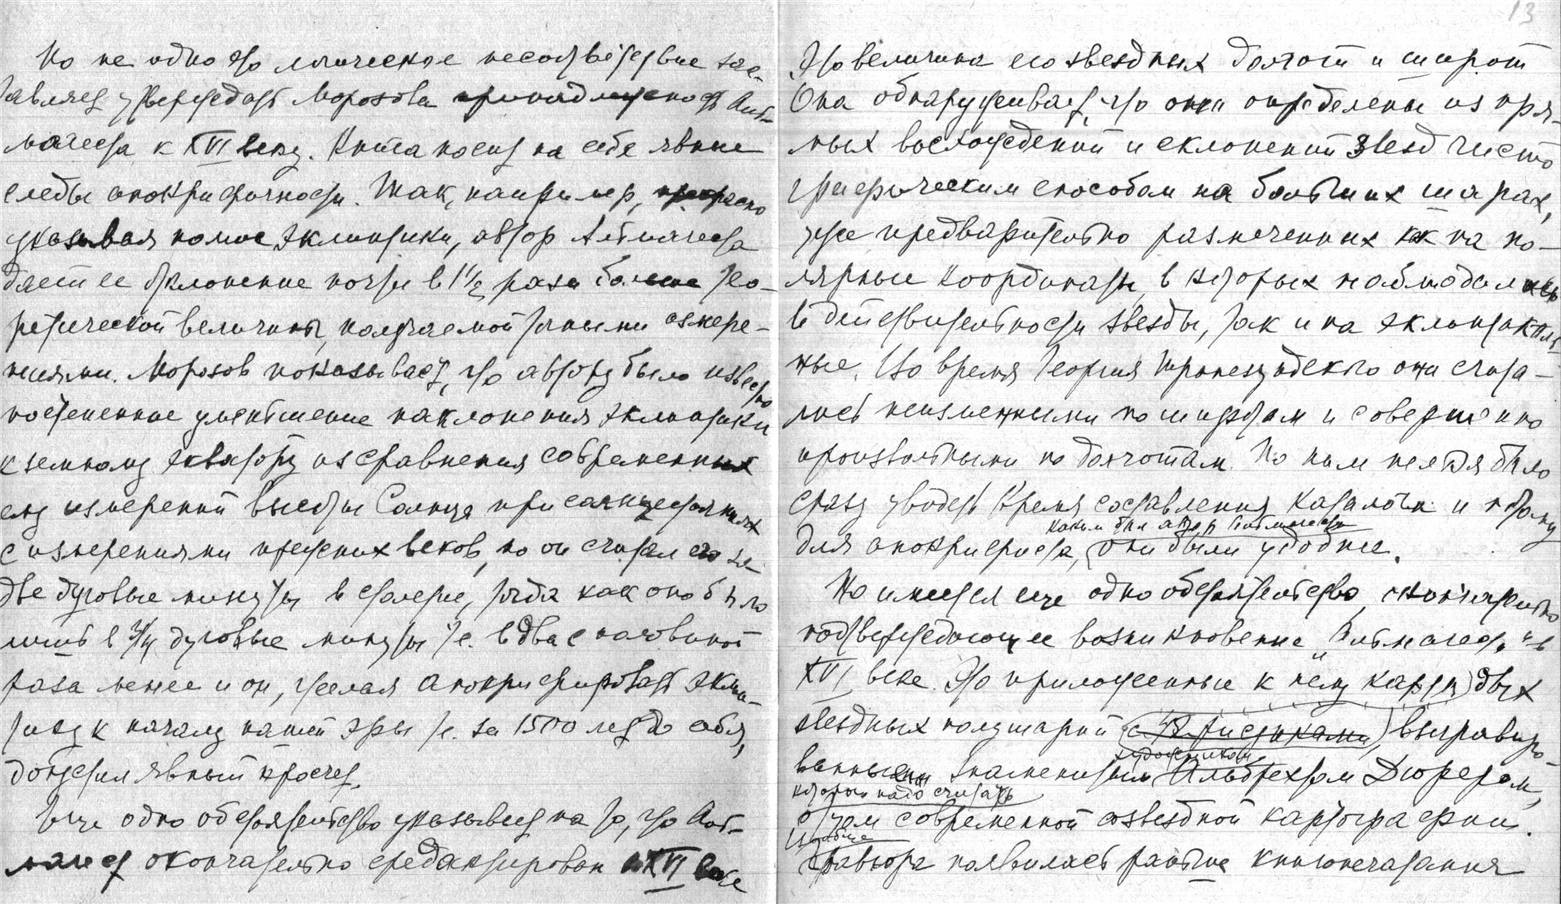 Но не одно это логическое несоответствие зас-
тавляет утверждать Морозова принадлежность Аль-
магеста к XVI веку. Книга носит на себе явные
следы апокрифичности. Так, например,
указывая полюс эклиптики, автор Альмагеста
дает ее склонение почти в 1½ раза больше тео-
ретической величины, получаемой точными измере-
ниями. Морозов показывает, что автору было известно
постепенное уменьшение наклонения эклиптики
к земному экватору из сравнения современных
ему измерений высоты Солнца при солнцестояниях
с измерениями прежних веков, но он считал его за
две дуговые минуты в столетие, тогда как оно было
лишь в 3/4 дуговые минуты т.е. в два с половиной
раза менее и он, желая апокрифировать эклип-
тику к началу нашей эры т.е. за 1500 лет до себя,
допустил явный просчет.
Еще одно обстоятельство указывает на то, что Аль-
магест окончательно средактирован в XVI веке
13
Это величина его звездных долгот и широт
Она обнаруживает, что они определены из пря-
мых восхождений и склонений звезд чисто
графическим способом на больших шарах,
уже предварительно размеченных как на по-
лярные координаты, в которых наблюдались
в действительности звезды, так и на эклиптикаль
ные. Во время Георгия Трапезундского они счита-
лись неизменными по широтам и совершенно
произвольными по долготам. По ним нельзя было
сразу узнать время составления каталога и потому
для апокрифиста, каким был автор Альмагеста они были удобные.
Но имеется еще одно обстоятельство, окончательно
подтверждающее возникновение "Альмагеста" в
XVI веке. Это приложенные к нему карты двух
звездных полушарий (с рисунками), выгравиро-
ванные знаменитым художником Альбрехтом Дюрером,
которого надо считать
отцом современной созвездной картографии.
Гравюра появилась раньше книгопечатания